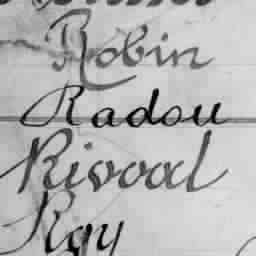 Robin
Radou
Rivoal
Ray